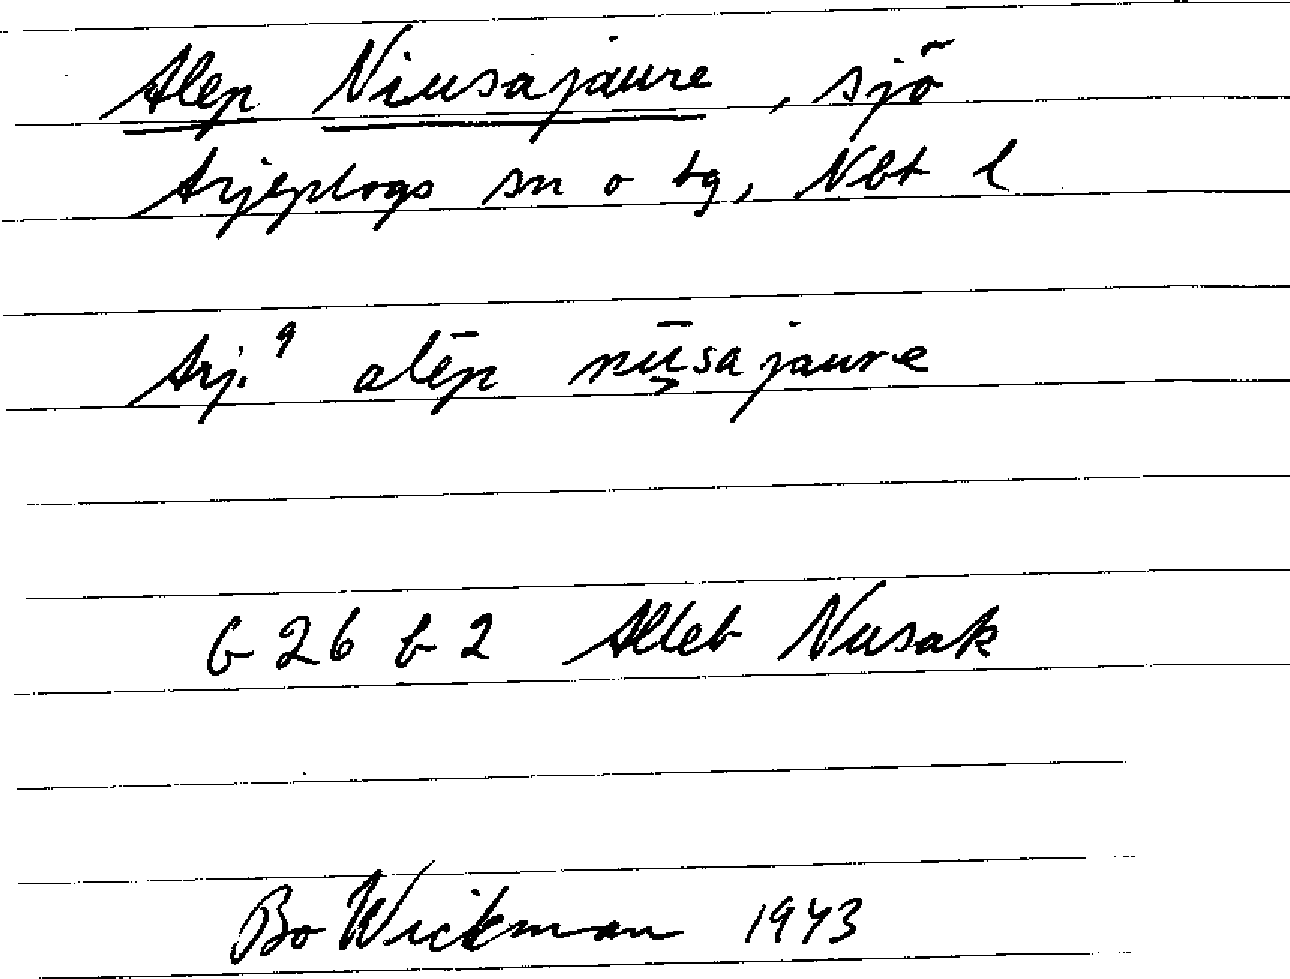 Alep Niusajaure, sjö
Arjeplogs sn o tg, Nbt l
Arj. 9 alēp nīu̯sajaure
G 26 b 2 Alleb Nusak
Bo Wickman 1943